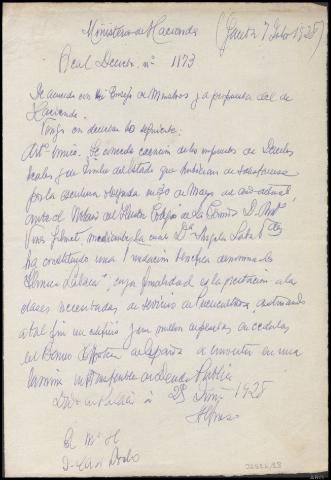 Ministerio de Hacienda (Gaceta 7 Julio 1928)
Real Decreto nº 1173
De acuerdo con Mi Consejo de Ministros y a propuesta del de
Hacienda.
Vengo en decretar lo siguiente:
Artº único. Se concede exención de los impuestos de Derechos
reales y de timbre del Estado que hubieran de satisfacerse
por la escritura otorgada en 30 de Mayo del año actual,
ante el Notario del Ilustre Colegio de la Coruña D.
mediante la cual Dª Angela
ha constituido una Fundación benéfica denominada
"Clínica Labaca", cuya finalidad es la prestación a las
clases necesitadas de servicios de
a tal fin un edificio y un millón de pesetas en cédulas
del Banco Hipotecario de España a convertir en una
lámina intransferible de Deuda Pública
Dado en Palacio a 28 Junio 1928
Alfonso
El Mº H
J. Calvo Sotelo